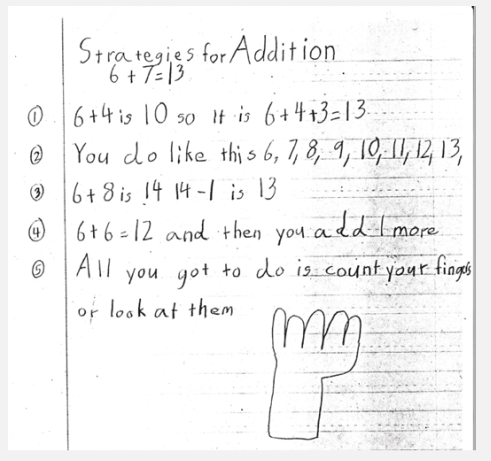 Strategies for Addition
6+7=13
① 6+4 is 10 so it is 6+4+3=13
② You do like this 6, 7, 8, 9, 10, 11, 12, 13,
③ 6+8 is 14 14-1 is 13
④ 6+6=12 and then you add 1 more
⑤ All you got to do is count your fingers
or look at them